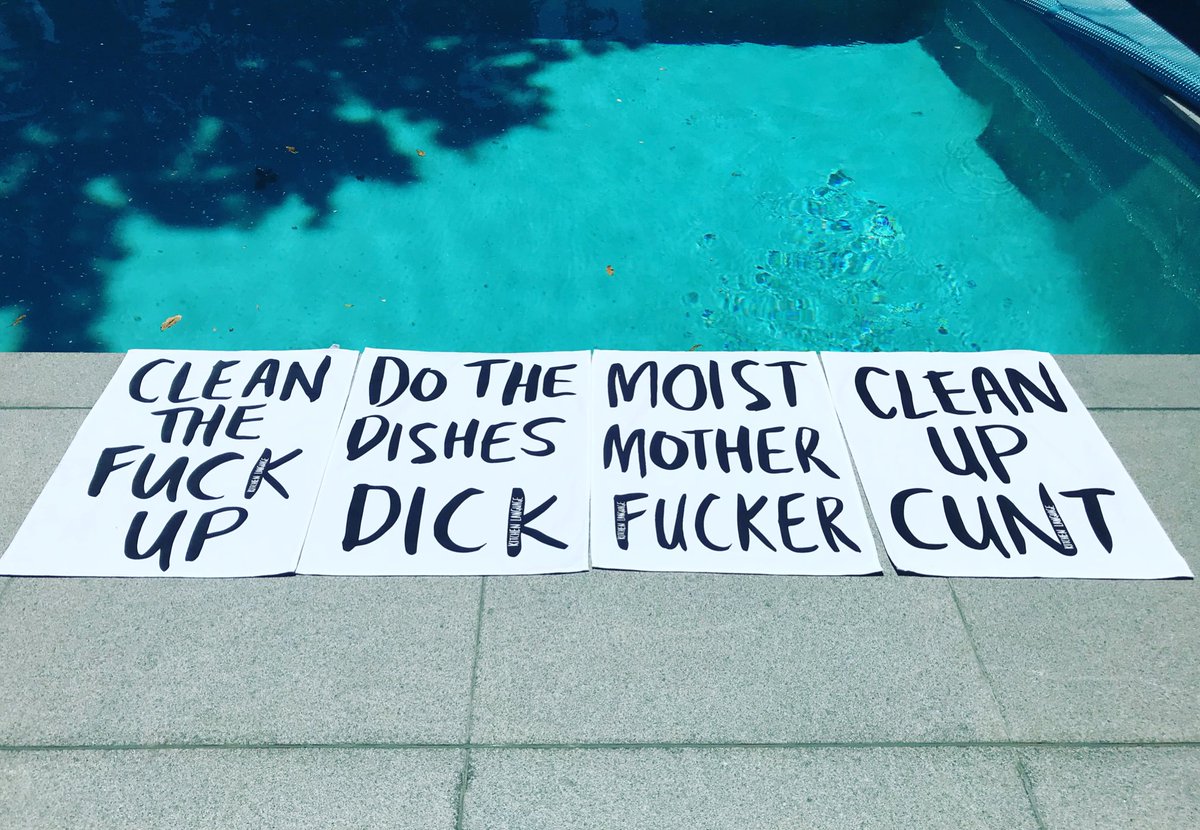 CLEAN
THE
FUCK
UP
KITCHEN LANGUAGE
DO THE
DISHES
DICK
KITCHEN LANGUAGE
MOIST
MOTHER
FUCKER
KITCHEN LANGUAGE
CLEAN
UP
CUNT
KITCHEN LANGUAGE